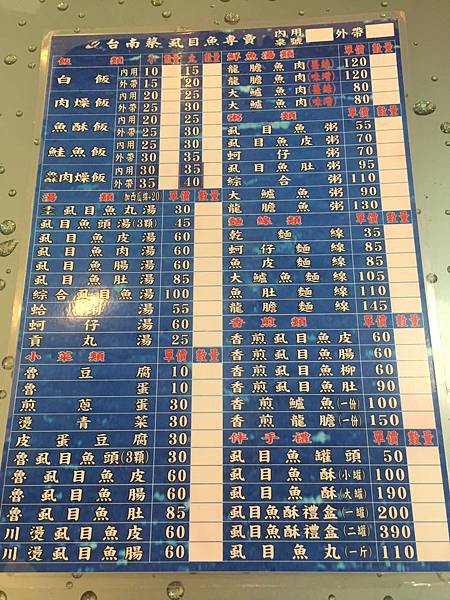 台南蔡虱目魚專賣 內用 桌號 外帶
飯類 小 數量 大 數量
白飯 內用 10 15
外帶 20 25
肉燥飯 內用 20 25
外帶 25 30
魚酥飯 內用 20 25
外帶 25 30
鮭魚飯 內用 25 30
外帶 30 35
魚肉燥飯 內用 30 35
外帶 35 40
湯類 加西麵線+20 單價 數量
虱目魚丸湯 30
虱目魚頭湯(3顆) 45
虱目魚皮湯 60
虱目魚肉湯 60
虱目魚腸湯 60
虱目魚肚湯 85
綜合虱目魚湯 100
蛤蜊湯 55
蚵仔湯 60
貢丸湯 25
小菜類 單價 數量
魯豆腐 10
魯蛋 10
煎蔥蛋 30
燙青菜 30
皮蛋豆腐 30
魯虱目魚頭(3顆) 30
魯虱目魚皮 60
魯虱目魚腸 60
魯虱目魚肚 85
川燙虱目魚皮 60
川燙虱目魚腸 60
鮮魚湯類 單價 數量
龍膽魚肉(薑絲) 120
龍膽魚肉(味噌) 120
大鱸魚肉(薑絲) 80
大鱸魚肉(味噌) 80
粥類 單價 數量
虱目魚粥 55
虱目魚皮粥 70
蚵仔粥 70
虱目魚肚粥 95
綜合粥 110
大鱸魚粥 90
龍膽魚粥 130
麵線類 單價 數量
乾麵線 35
蚵仔麵線 85
魚皮麵線 85
大鱸魚麵線 105
魚肚麵線 110
龍膽麵線 145
香煎類 單價 數量
香煎虱目魚皮 60
香煎虱目魚腸 60
香煎虱目魚柳 60
香煎虱目魚肚 90
香煎鱸魚(一份) 100
香煎龍膽(一份) 150
伴手禮 單價 數量
虱目魚罐頭 50
虱目魚酥(小罐) 100
虱目魚酥(大罐) 190
虱目魚酥禮盒(一罐) 200
虱目魚酥禮盒(二罐) 390
虱目魚丸(一斤) 110